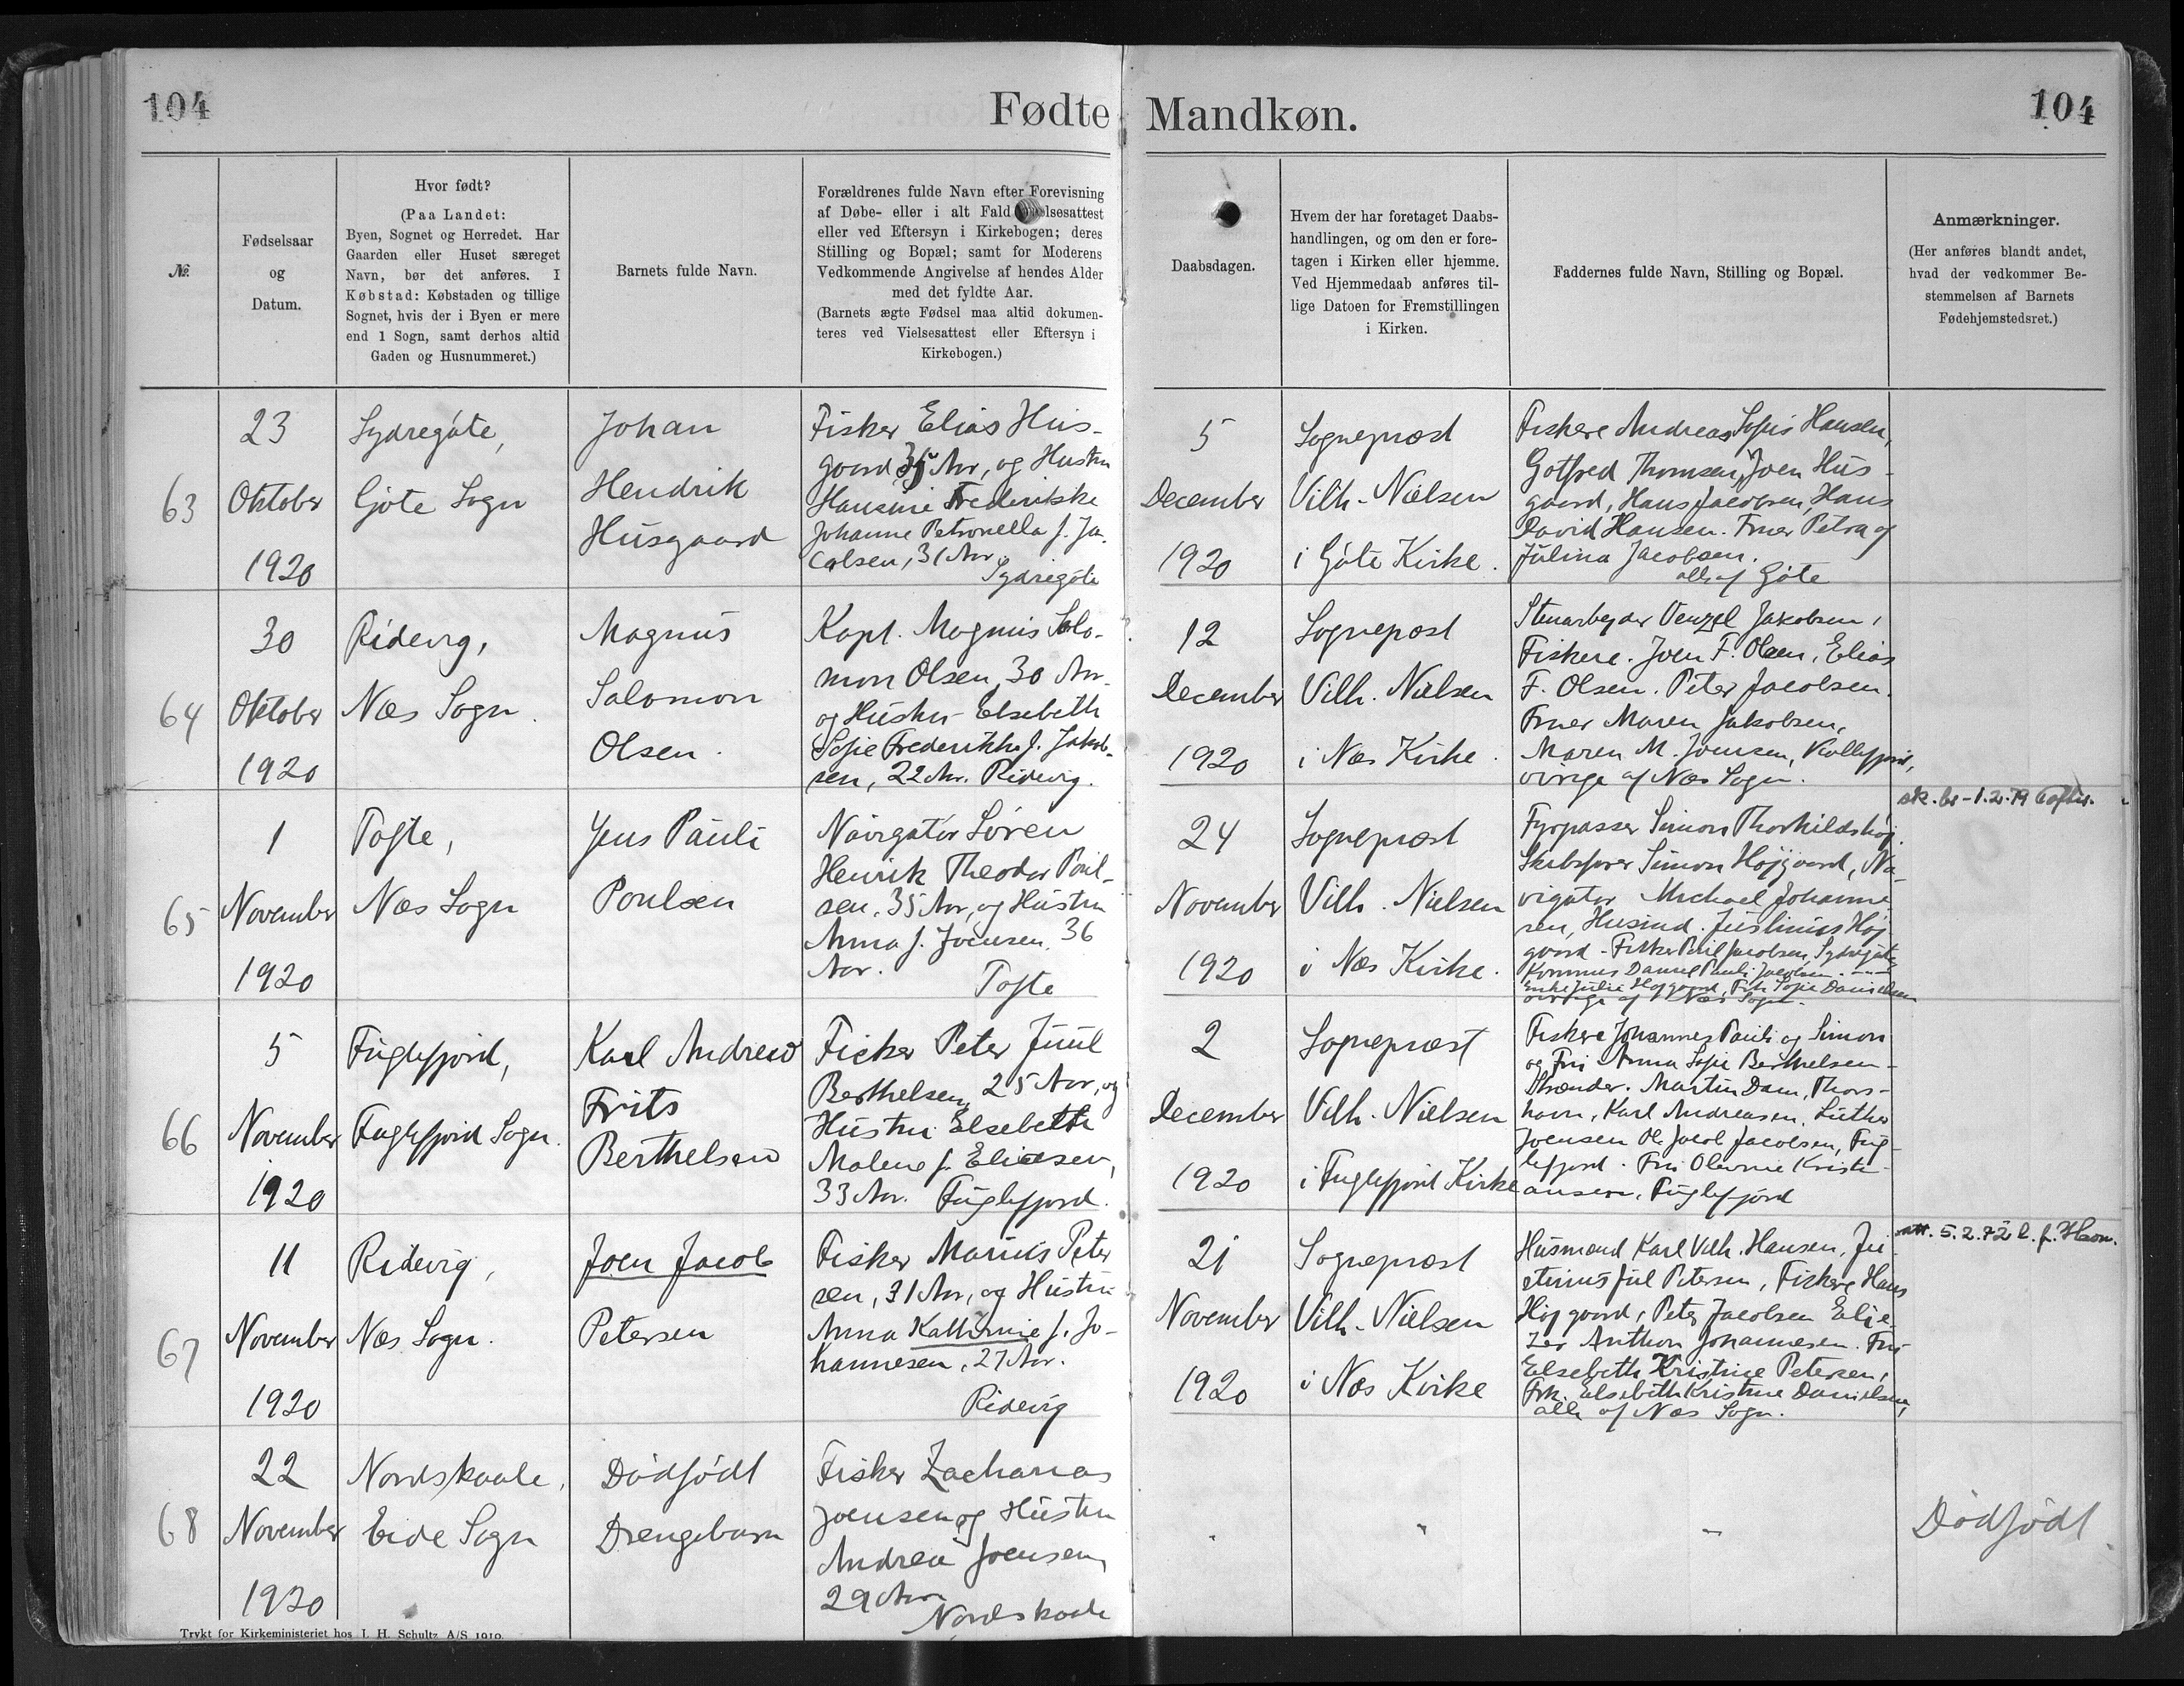 104
Fødte Mandkøn.
104
№
Fødselsaar
og
Datum.
Hvor født?
(Paa Landet:
Byen, Sognet og Herredet. Har
Gaarden eller Huset særeget
Navn, bør det anføres. I
Købstad: Købstaden og tillige
Sognet, hvis der i Byen er mere
end 1 Sogn, samt derhos altid
Gaden og Husnummeret.)
Barnets fulde Navn.
Forældrenes fulde Navn efter Forevisning
af Døbe- eller i alt Fald
eller ved Eftersyn i Kirkebogen; deres
Stilling og Bopæl; samt for Moderens
Vedkommende Angivelse af hendes Alder
med det fyldte Aar.
(Barnets ægte Fødsel maa altid dokumen-
teres ved Vielsesattest eller Eftersyn i
Kirkebogen.)
Daabsdagen.
Hvem der har foretaget Daabs-
handlingen, og om den er fore-
tagen i Kirken eller hjemme.
Ved Hjemmedaab anføres til-
lige Datoen for Fremstillingen
i Kirken.
Faddernes fulde Navn, Stilling og Bopæl.
Anmærkninger.
(Her anføres blandt andet,
hvad der vedkommer Be-
stemmelsen af Barnets
Fødehjemstedsret.)
63
23
Oktober
1920
Sydregøte,
Gøte Sogn
Johan
Hendrik
Husgaard
Fisker Elias Hus-
gaard 35 Aar, og Hustru
Hansine Frederikke
Johanne Petronella f. Ja-
cobsen, 31 Aar.
Sydregøte
5
December
1920
Sognepræst
Vilh. Nielsen
i Gøte Kirke.
Fiskere Andreas Sofus Hansen,
Gotfred Thomsen, Joen Hus-
gaard, Hans Jacobsen, Hans
David Hansen. Fruer Petra og
Julina Jacobsen.
alle af Gøte
64
30
Oktober
1920
Ridevig,
Næs Sogn.
Magnus
Salomon
Olsen.
Kapt. Magnus Salo-
mon Olsen, 30 Aar.
og Hustru Elsebeth
Sofie Frederikke f. Jakob-
sen, 22 Aar. Ridevig.
12
December
1920
Sognepræst
Vilh. Nielsen
i Næs Kirke.
Stenarbejder Venzel Jakobsen,
Fiskere. Joen F. Olsen, Elias
F. Olsen. Peter Jacobsen.
Fruer Maren Jakobsen,
Maren M. Joensen, Kollefjord,
øvrige af Næs Sogn.
65
1
November
1920
Tofte,
Næs Sogn
Jens Pauli
Poulsen
Navigatør Søren
Henrik Theodor Poul-
sen, 35 Aar, og Hustru
Anna f. Joensen, 36
Aar.
Tofte
24
November
1920
Sognepræst
Vilh. Nielsen
i Næs Kirke.
Fyrpasser Simon Thorkildshøj
Skibsfører Simon Højgaard, Na-
vigatør Michael Johanne
sen, Husmd. Justinus Høj
gaard - Fisker Poul Jacobsen, Sydregøte
Daniel Pauli Jacobsen.
Enke Julie Højgaard, Frk. Sofie Danielsen
øvrige af Næs Sogn.
sk. br - 1.2.79 Toftir.
66
5
November
1920
Fuglefjord,
Fuglefjord Sogn.
Karl Andrew
Frits
Berthelsen
Fisker Peter Juul
Berthelsen, 25 Aar, og
Hustru Elsebeth
Malene f. Eliasen,
33 Aar. Fuglefjord.
2
December
1920
Sognepræst
Vilh. Nielsen
i Fuglefjord Kirke
Fiskere Johannes Pauli og Simon
og Fru Anna Sofie Berthelsen -
Strænder. Martin Dam, Thors-
havn, Karl Andreasen, Luther
Joensen Ol. Jacob Jacobsen, Fug-
lefjord. Fru Olevine Kristi-
ansen, Fuglefjord
67
11
November
1920
Ridevig,
Næs Sogn.
Joen Jacob
Petersen
Fisker Marius Peter
sen, 31 Aar, og Hustru
Anna Kathrine f. Jo-
hannesen, 27 Aar.
Ridevig
21
November
1920
Sognepræst
Vilh. Nielsen
i Næs Kirke
Husmænd Karl Vilh. Hansen, Ju-
stinus Jul Petersen, Fiskere Hans
Højgaard, Peter Jacobsen Elie-
zer Anthon Johannesen. Fru
Elsebeth Kristine Petersen,
Frk. Elsebeth Kristine Danielsen,
alle af Næs Sogn.
att. 5.2.72 l. f. Havn.
68
22
November
1920
Nordskaale,
Eide Sogn
Dødfødt
Drengebarn
Fisker Zacharias
Joensen og Hustru
Andrea Joensen
29 Aar
Nordskaale
"
"
"
Dødfødt
Trykt for Kirkeministeriet hos J. H. Schultz A/S 1919.